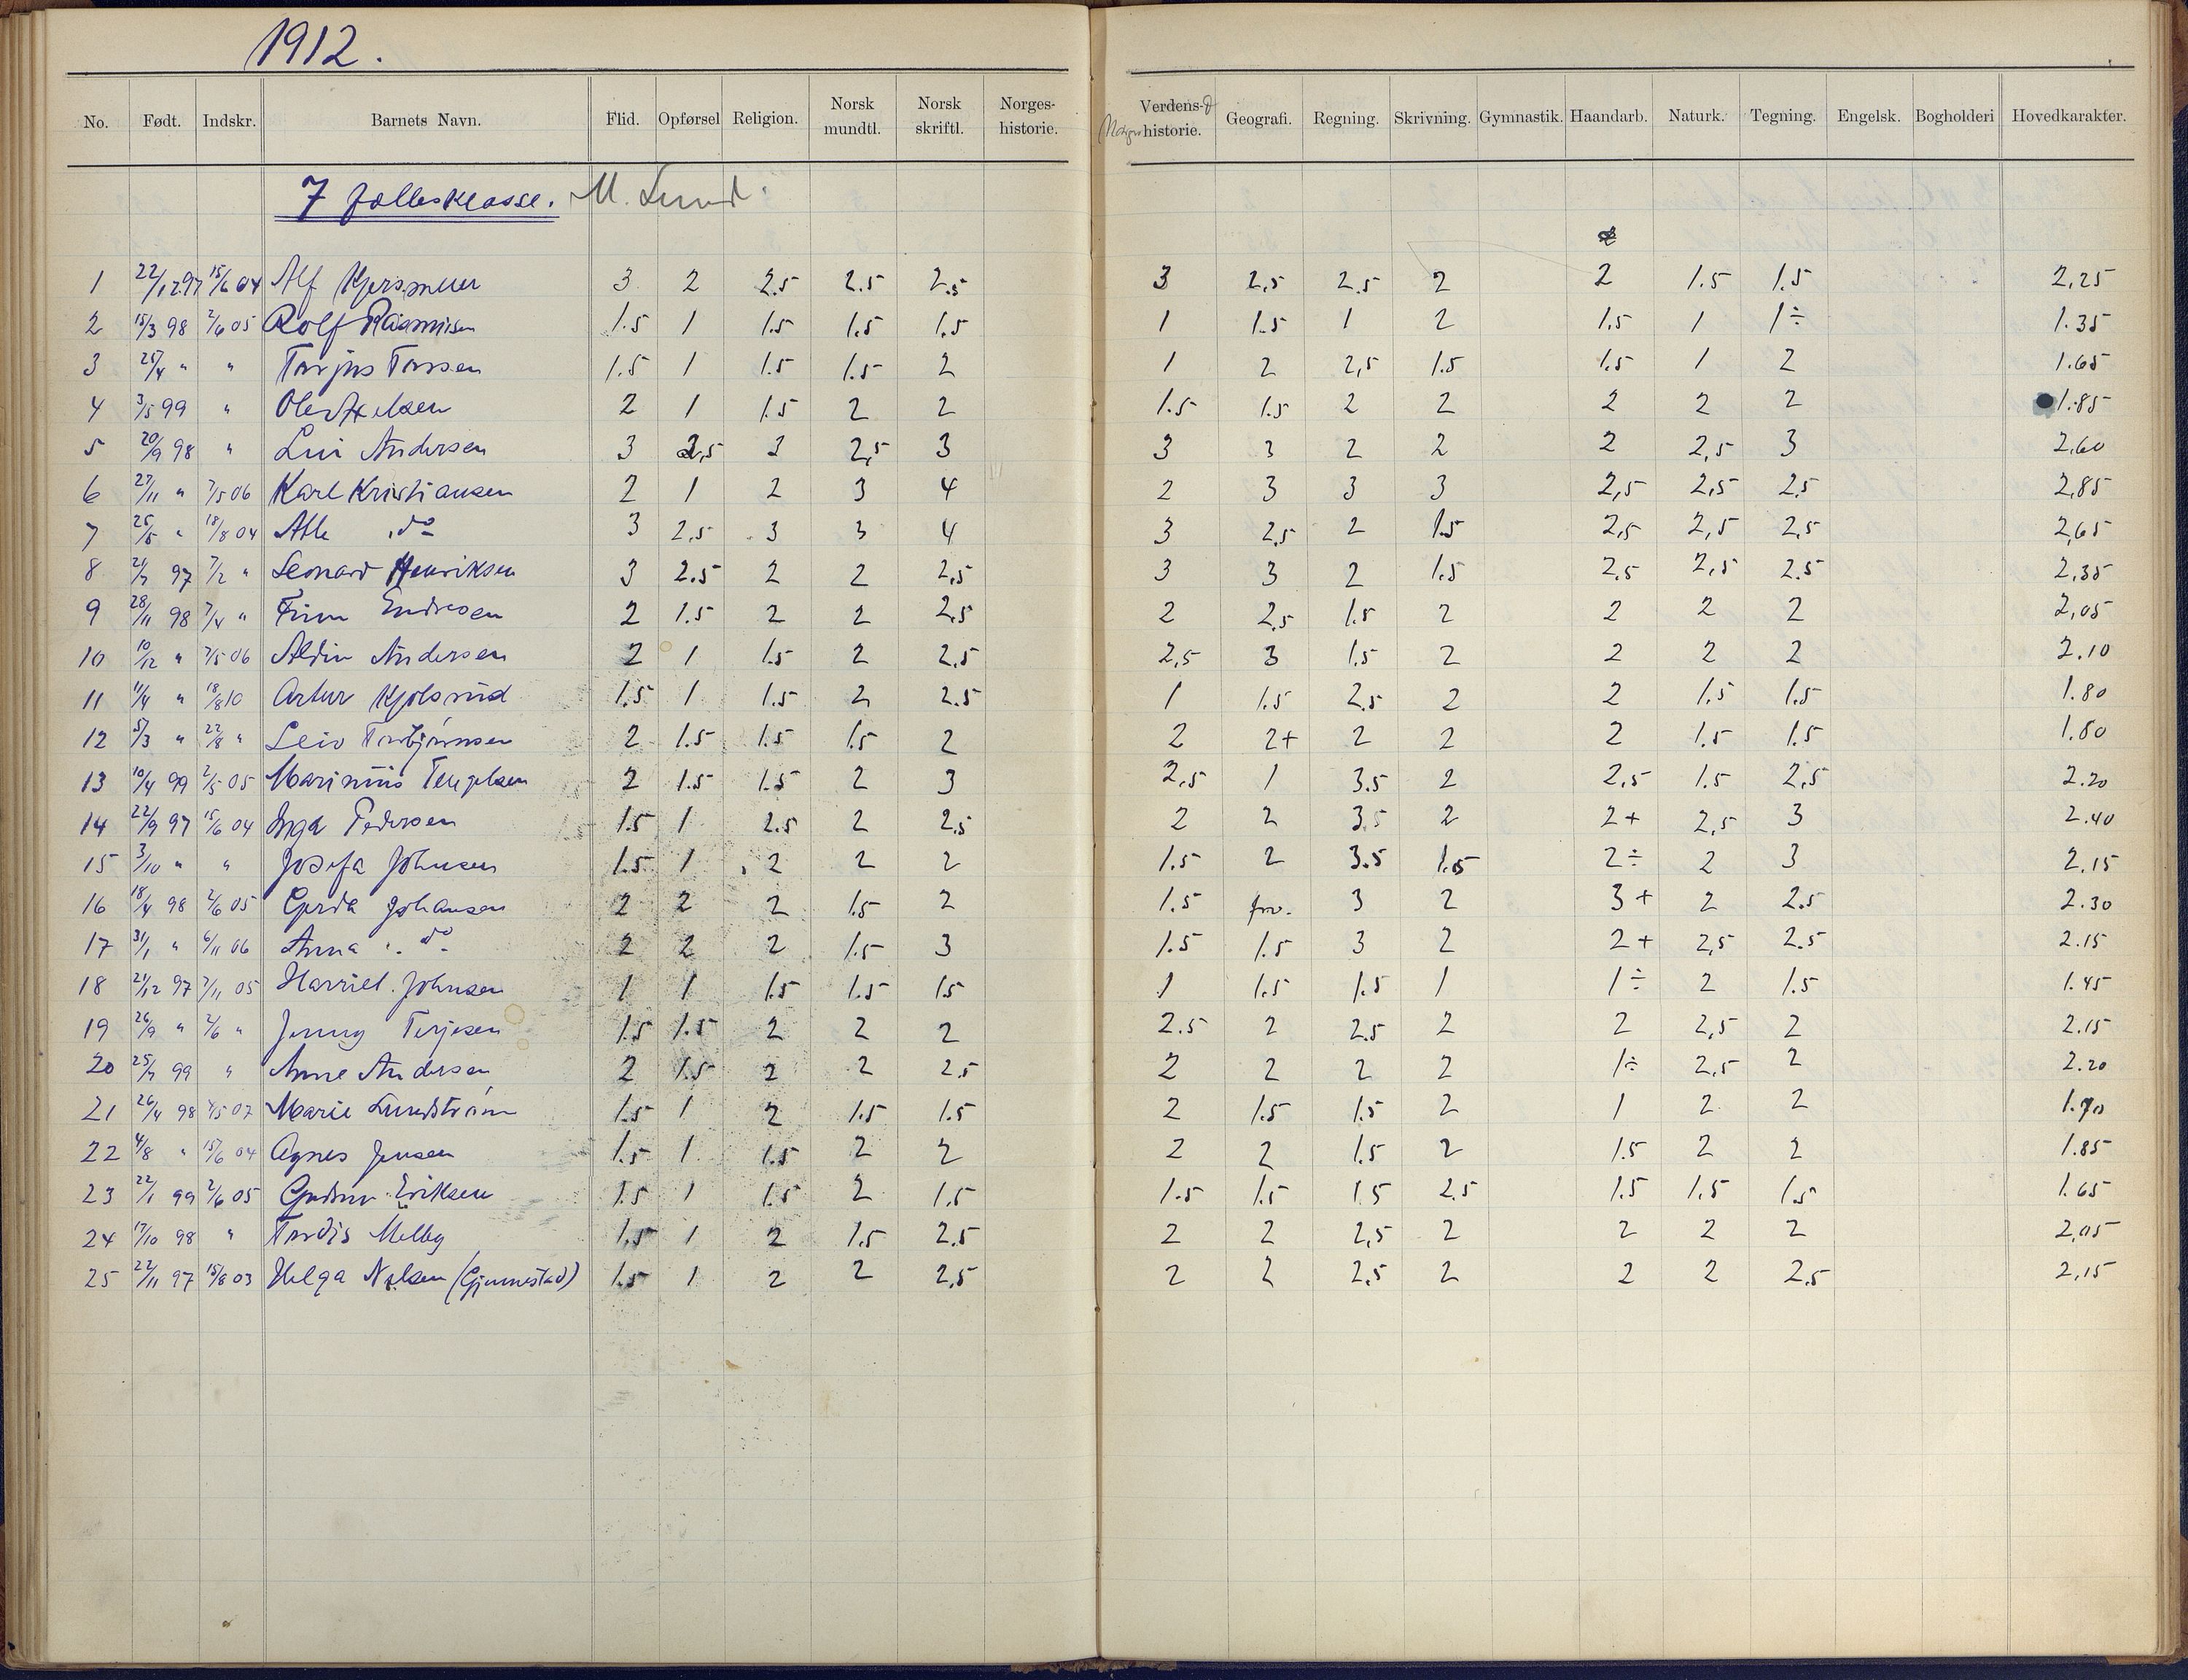 1912.
No. Født. Indskr. Barnets Navn. Flid. Opførsel Religion. Norsk mundtl. Norsk skriftl. Norges-historie. Verdens-historie. Geografi. Regning. Skrivning. Gymnastik. Haandarb. Naturk. Tegning. Engelsk. Bogholderi Hovedkarakter.
7 fællesklasse. M. Lund
1 22/12 97 15/6 04 Alf 3 2 2.5 2.5 2.5 3 2,5 2.5 2 2 1.5 1.5 2,25
2 15/3 98 2/6 05 Rolf Rasmussen 1.5 1 1.5 1.5 1.5 1 1.5 1 2 1.5 1 1÷ 1.35
3 25/4 " " Torjus Torssen 1.5 1 1.5 1.5 2 1 2 2,5 1.5 1.5 1 2 1.65
4 3/5 99 " Olav Axelsen 2 1 1.5 2 2 1.5 1.5 2 2 2 2 2 1.85
5 20/9 98 " Andersen 3 2,5 3 2,5 3 3 3 2 2 2 2,5 3 2,60
6 27/11 " 7/5 06 Karl Kristiansen 2 1 2 3 4 2 3 3 3 2,5 2,5 2.5 2,85
7 25/5 " 18/8 04 Atle do 3 2,5 3 3 4 3 2,5 2 1.5 2,5 2,5 2,5 2,65
8 21/7 97 7/2 " Leonard Henriksen 3 2.5 2 2 2,5 3 3 2 1.5 2,5 2,5 2.5 2,35
9 28/11 98 7/4 " Finn Endresen 2 1.5 2 2 2,5 2 2,5 1.5 2 2 2 2 2,05
10 10/12 " 7/5 06 Aldin Andersen 2 1 1.5 2 2,5 2,5 3 1.5 2 2 2 2 2.10
11 11/4 " 18/8 10 Artur Kjølsrud 1.5 1 1.5 2 2.5 1 1.5 2.5 2 2 1.5 1.5 1.80
12 5/3 " 22/8 " Leiv Torbjørnsen 2 1.5 1.5 1.5 2 2 2+ 2 2 2 1.5 1.5 1.80
13 10/4 99 2/5 05 Marinius Tengelsen 2 1.5 1.5 2 3 2,5 1 3.5 2 2,5 1.5 2,5 2.20
14 22/9 97 15/6 04 Inga Pedersen 1.5 1 2.5 2 2,5 2 2 3.5 2 2+ 2,5 3 2.40
15 3/10 " " Josefa Johnsen 1.5 1 2 2 2 1.5 2 3.5 1.5 2÷ 2 3 2.15
16 18/4 98 2/6 05 Gerda Johansen 2 2 2 1.5 2 1.5 frv. 3 2 3+ 2 2.5 2.30
17 31/1 " 6/11 06 Anna do 2 2 2 1.5 3 1.5 1.5 3 2 2+ 2,5 2.5 2.15
18 21/12 97 7/11 05 Harriet Johnsen 1 1 1.5 1.5 1.5 1 1.5 1.5 1 1÷ 2 1.5 1.45
19 26/9 " 2/6 " Jenny Terjesen 1.5 1.5 2 2 2 2.5 2 2.5 2 2 2,5 2 2.15
20 25/7 99 " Anne Andersen 2 1.5 2 2 2.5 2 2 2 2 1÷ 2,5 2 2.20
21 26/4 98 4/5 07 Marie Lundstrøm 1.5 1 2 1.5 1.5 2 1.5 1.5 2 1 2 2 1.70
22 4/8 " 15/6 04 Agnes Jensen 1.5 1 1.5 2 2 2 2 1.5 2 1.5 2 2 1.85
23 22/1 99 2/6 05 Gudrun Eriksen 1.5 1 1.5 2 1.5 1.5 1.5 1.5 2.5 1.5 1.5 1.5 1.65
24 17/10 98 " Tordis Melby 1.5 1 2 1.5 2.5 2 2 2,5 2 2 2 2 2,05
25 22/11 97 15/8 03 Helga Nilsen (Gjennestad) 1.5 1 2 2 2,5 2 2 2,5 2 2 2 2,5 2,15